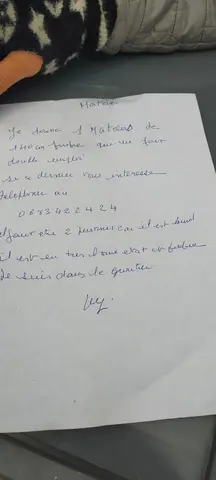 Matelas
Je donne 1 Matelas de
140cm propre que me fait
double emploi
si ce dernier vous interesse
telephoner au
0683422424
il faut etre 2 personnes car il est lourd
il est en tres bonne etat et propre
Je suis dans le quartier